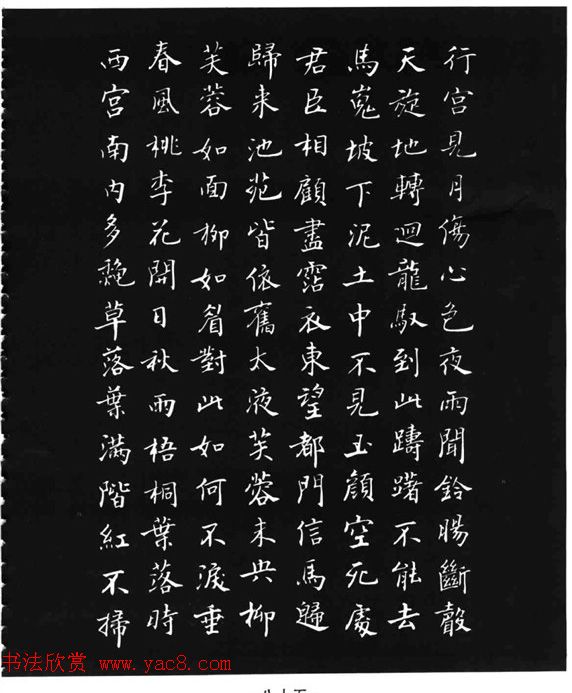 行宮見月傷心色夜雨聞鈴腸斷聲
天旋地轉迴龍馭到此躊躇不能去
馬嵬坡下泥土中不見玉顏空死處
君臣相顧盡霑衣東望都門信馬歸
歸來池苑皆依舊太液芙蓉未央柳
芙蓉如面柳如眉對此如何不淚垂
春風桃李花開日秋雨梧桐葉落時
西宮南內多龝草落葉滿階紅不掃
书法欣赏 www.yac8.com